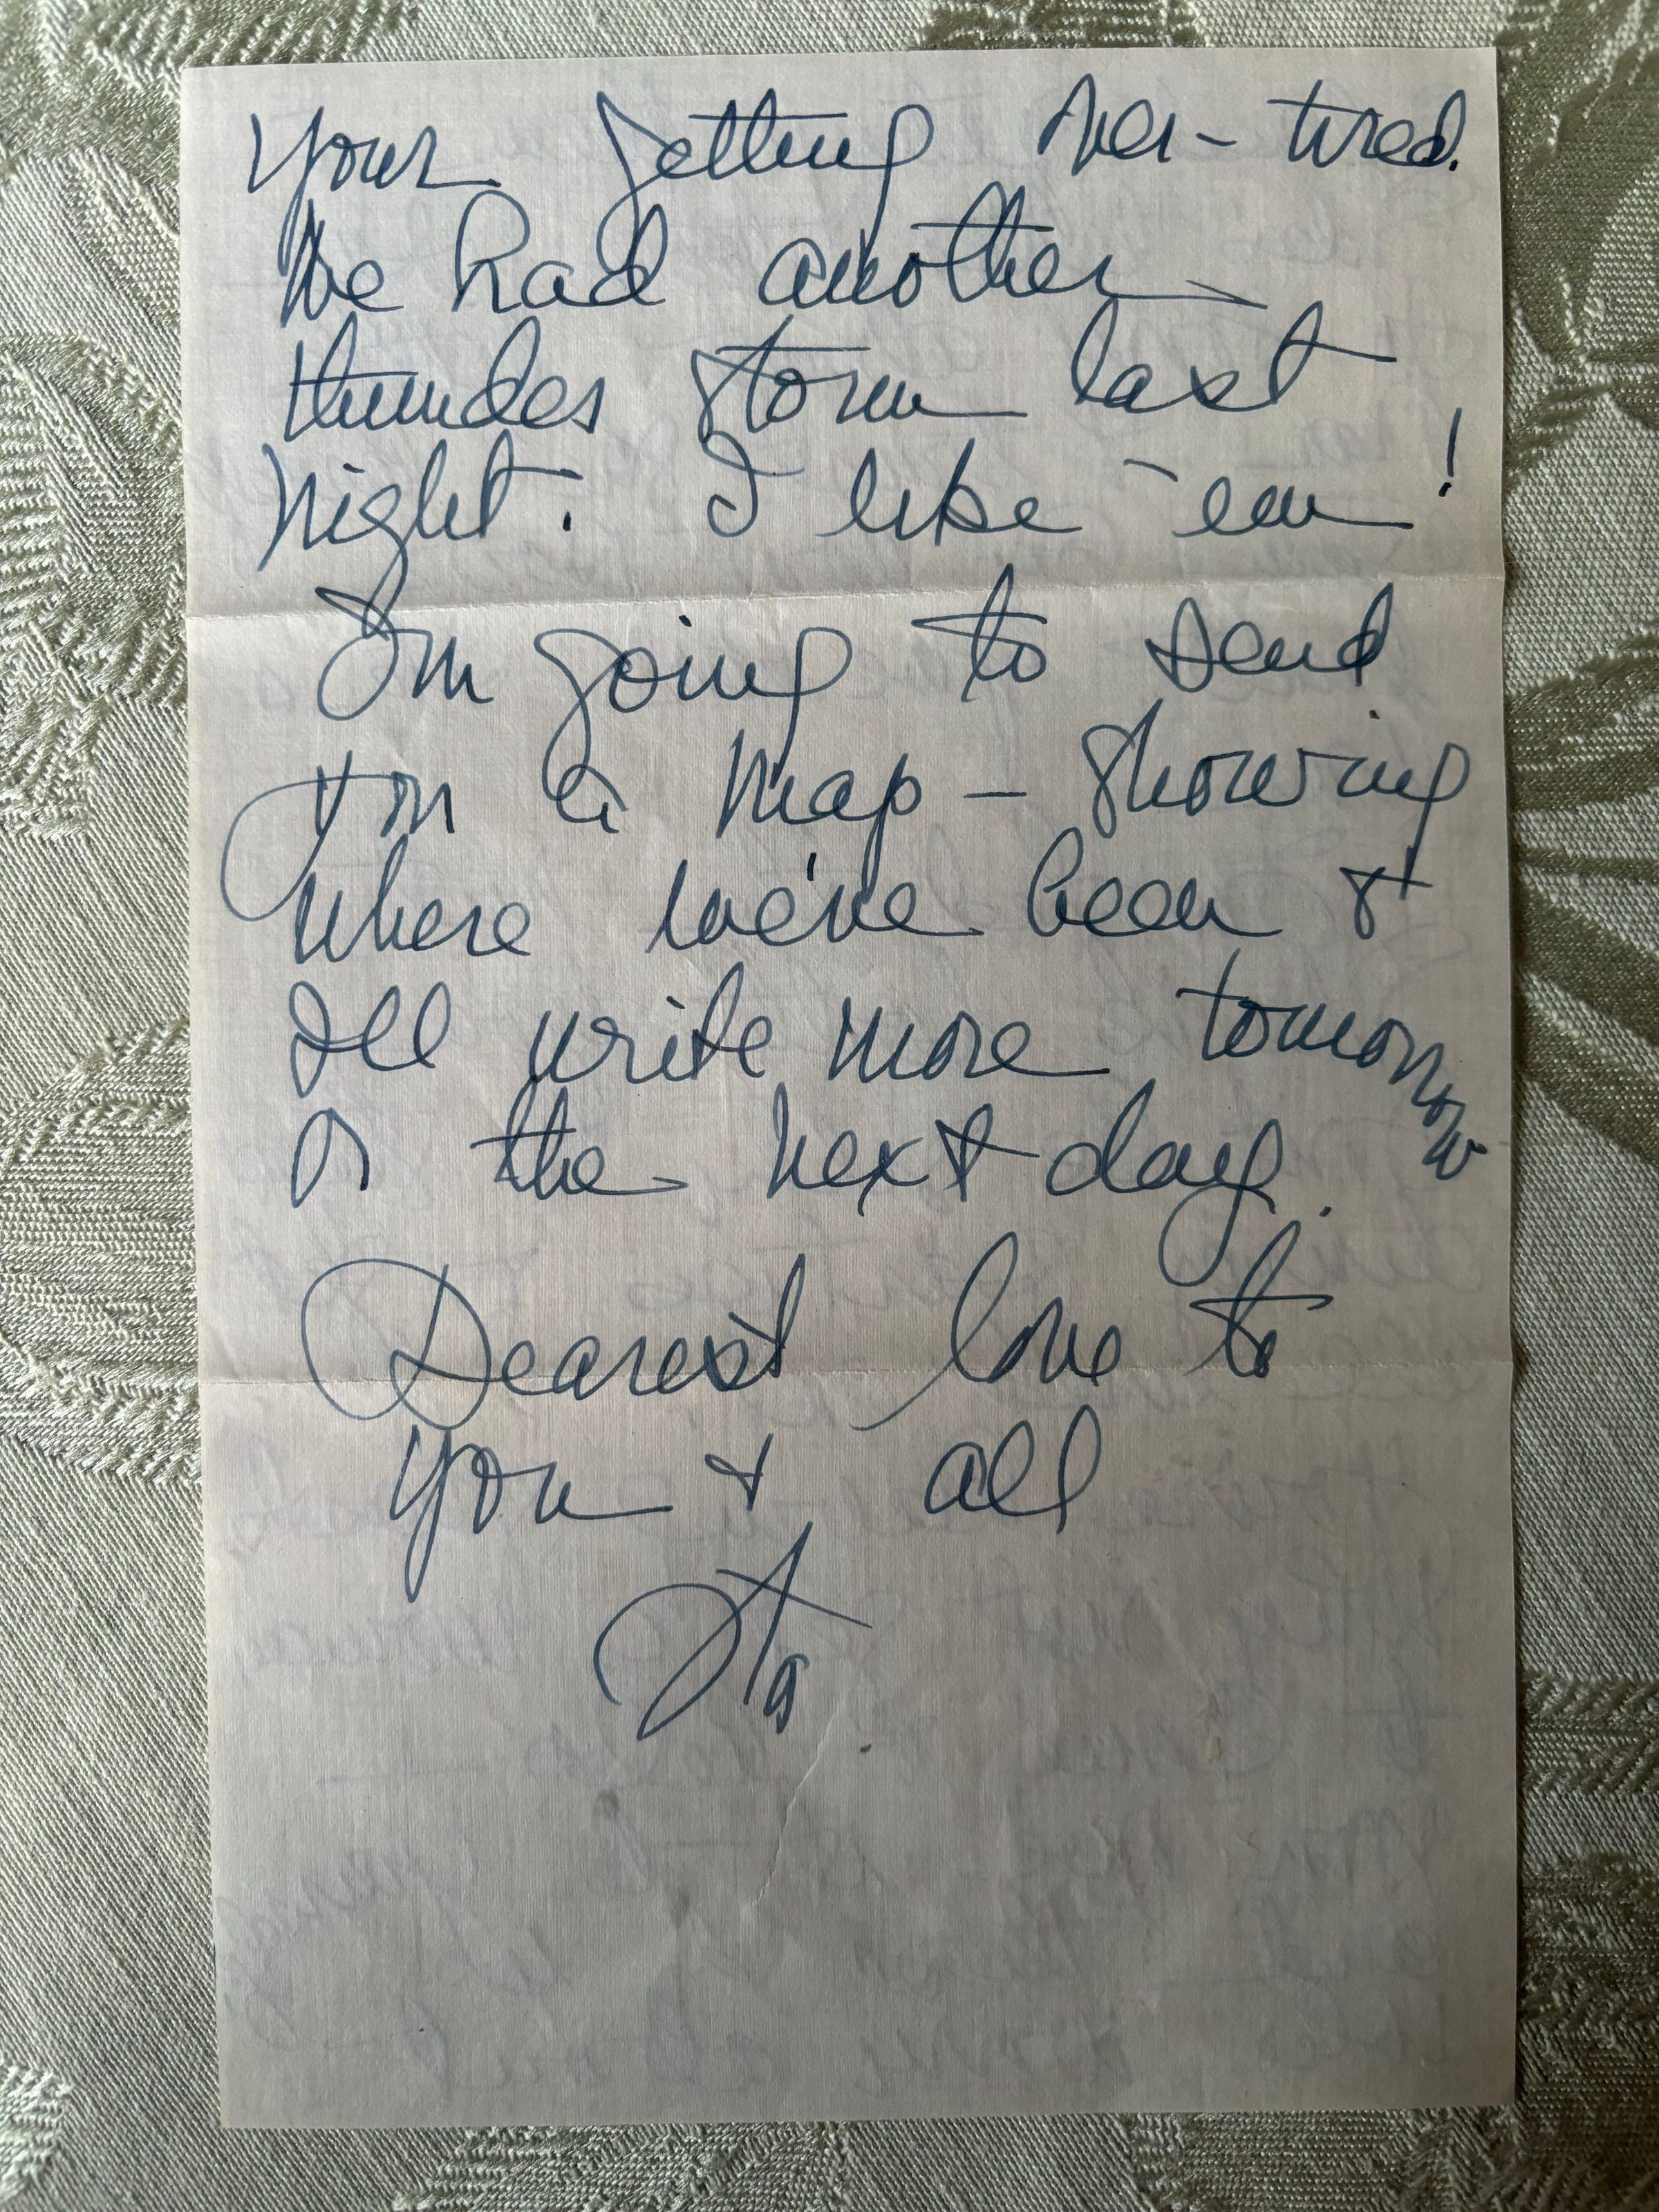 your getting over-tired.
We had another
thunder storm last
night. I like 'em!
I'm going to send
you a map - showing
where we've been &
I'll write more tomorrow
or the next day.
Dearest love to
you & all